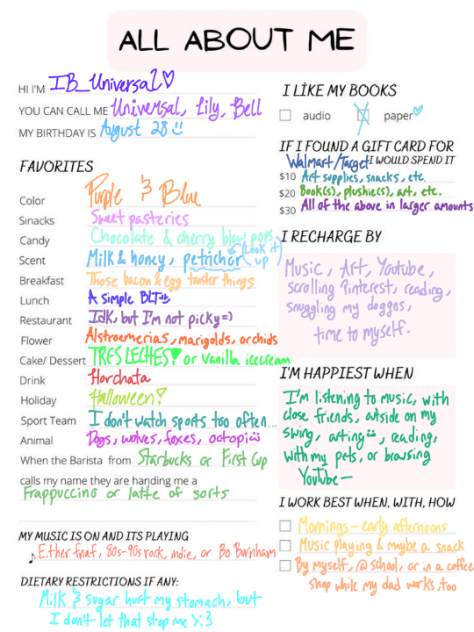 ALL ABOUT ME
HI I'M IB_Universal♡
YOU CAN CALL ME Universal, Lily, Bell
MY BIRTHDAY IS August 28
FAVORITES
Color Purple & Blue
Snacks Sweet pasteries
Candy Chocolate & cherry blow pops
Scent Milk & honey, petrichor (Look it up)
Breakfast Those bacon & egg twister things
Lunch A simple BLT
Restaurant Idk, but I'm not picky=)
Flower Alstroemerias, marigolds, orchids
Cake/ Dessert TRES LECHES! or Vanilla icecream
Drink Horchata
Holiday Halloween!
Sport Team I don't watch sports too often...
Animal Dogs, wolves, foxes, octopi
When the Barista from Starbucks or First Cup
calls my name they are handing me a
Frappuccino or latte of sorts
MY MUSIC IS ON AND ITS PLAYING
Either fnaf, 80s-90s rock, indie, or Bo Burnham
DIETARY RESTRICTIONS IF ANY:
Milk & sugar hurt my stomach, but
I don't let that stop me >:3
I LIKE MY BOOKS
audio paper♡
IF I FOUND A GIFT CARD FOR
Walmart/Target I WOULD SPEND IT
$10 Art supplies, snacks, etc.
$20 Book(s), plushie(s), art, etc.
$30 All of the above in larger amounts
I RECHARGE BY
Music, Art, Youtube,
scrolling Pinterest, reading,
snuggling my doggos,
time to myself.
I'M HAPPIEST WHEN
I'm listening to music, with
close friends, outside on my
swing, arting, reading,
with my pets, or browsing
YouTube—
I WORK BEST WHEN, WITH, HOW
Mornings - early afternoons
Music playing & maybe a snack
By myself, @ school, or in a coffee
shop while my dad works, too